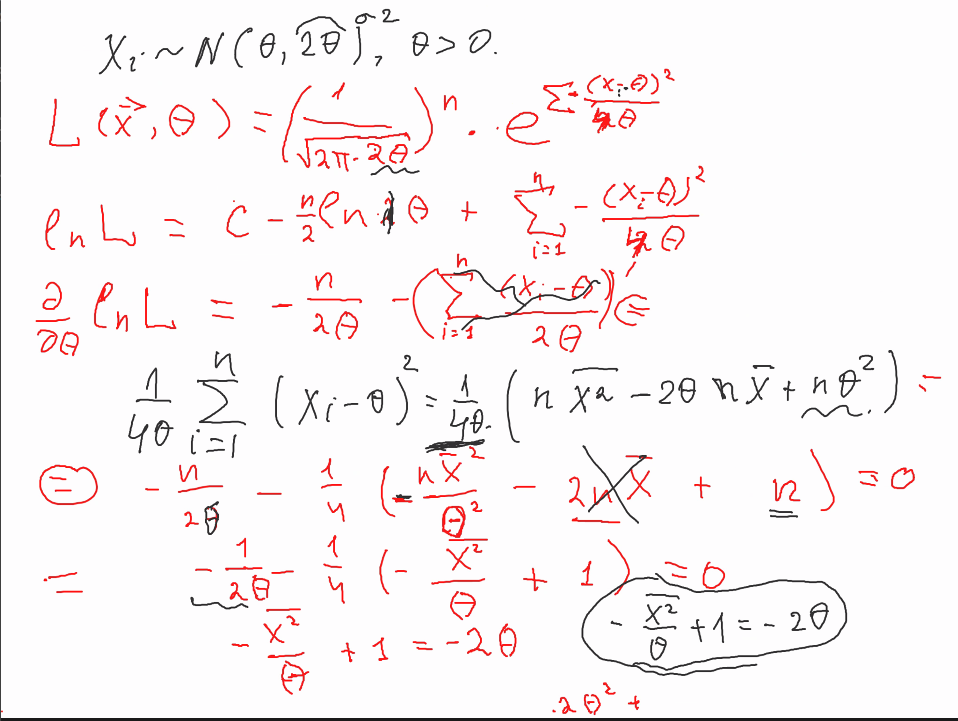 X_i ~ N(θ, 2θ), σ², θ > 0.
L(x⃗, θ) = (1/√(2π·2θ))ⁿ · e^{Σ -(x_i-θ)²/2θ}
ln L = C - n/2 ln θ + Σ_{i=1}^{n} - (x_i-θ)²/θ
∂/∂θ ln L = - n/2θ - (Σ_{i=1}^{n} (x_i-θ)/2θ)' ⊜
1/4θ Σ_{i=1}^{n} (x_i-θ)² = 1/4θ · (n x̅²̅ - 2θ n x̅ + nθ²) =
⊜ - n/2θ - 1/4 (- n x̅²̅/θ² - 2n x̅ + n) = 0
= - 1/2θ - 1/4 (- x̅²̅/θ + 1) = 0
- x̅²̅/θ + 1 = -2θ
- x̅²̅/θ + 1 = -2θ
.2θ² +